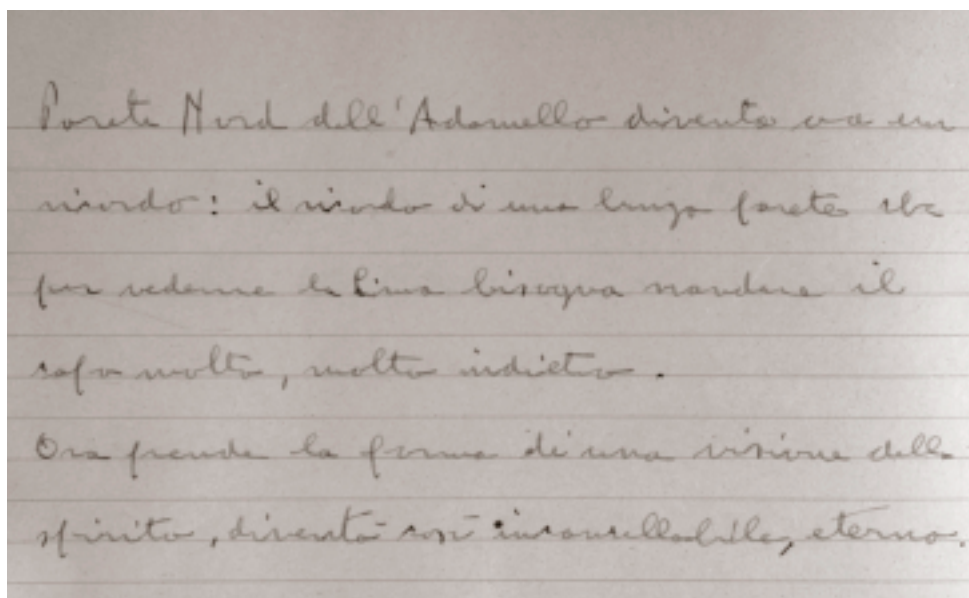 Parete Nord dell'Adamello diventa ora un
ricordo: il ricordo di una lunga parete che
per vederne la Cima bisogna mandare il
capo molto, molto indietro.
Ora prende la forma di una visione dello
spirito, diventa così incancellabile, eterna.